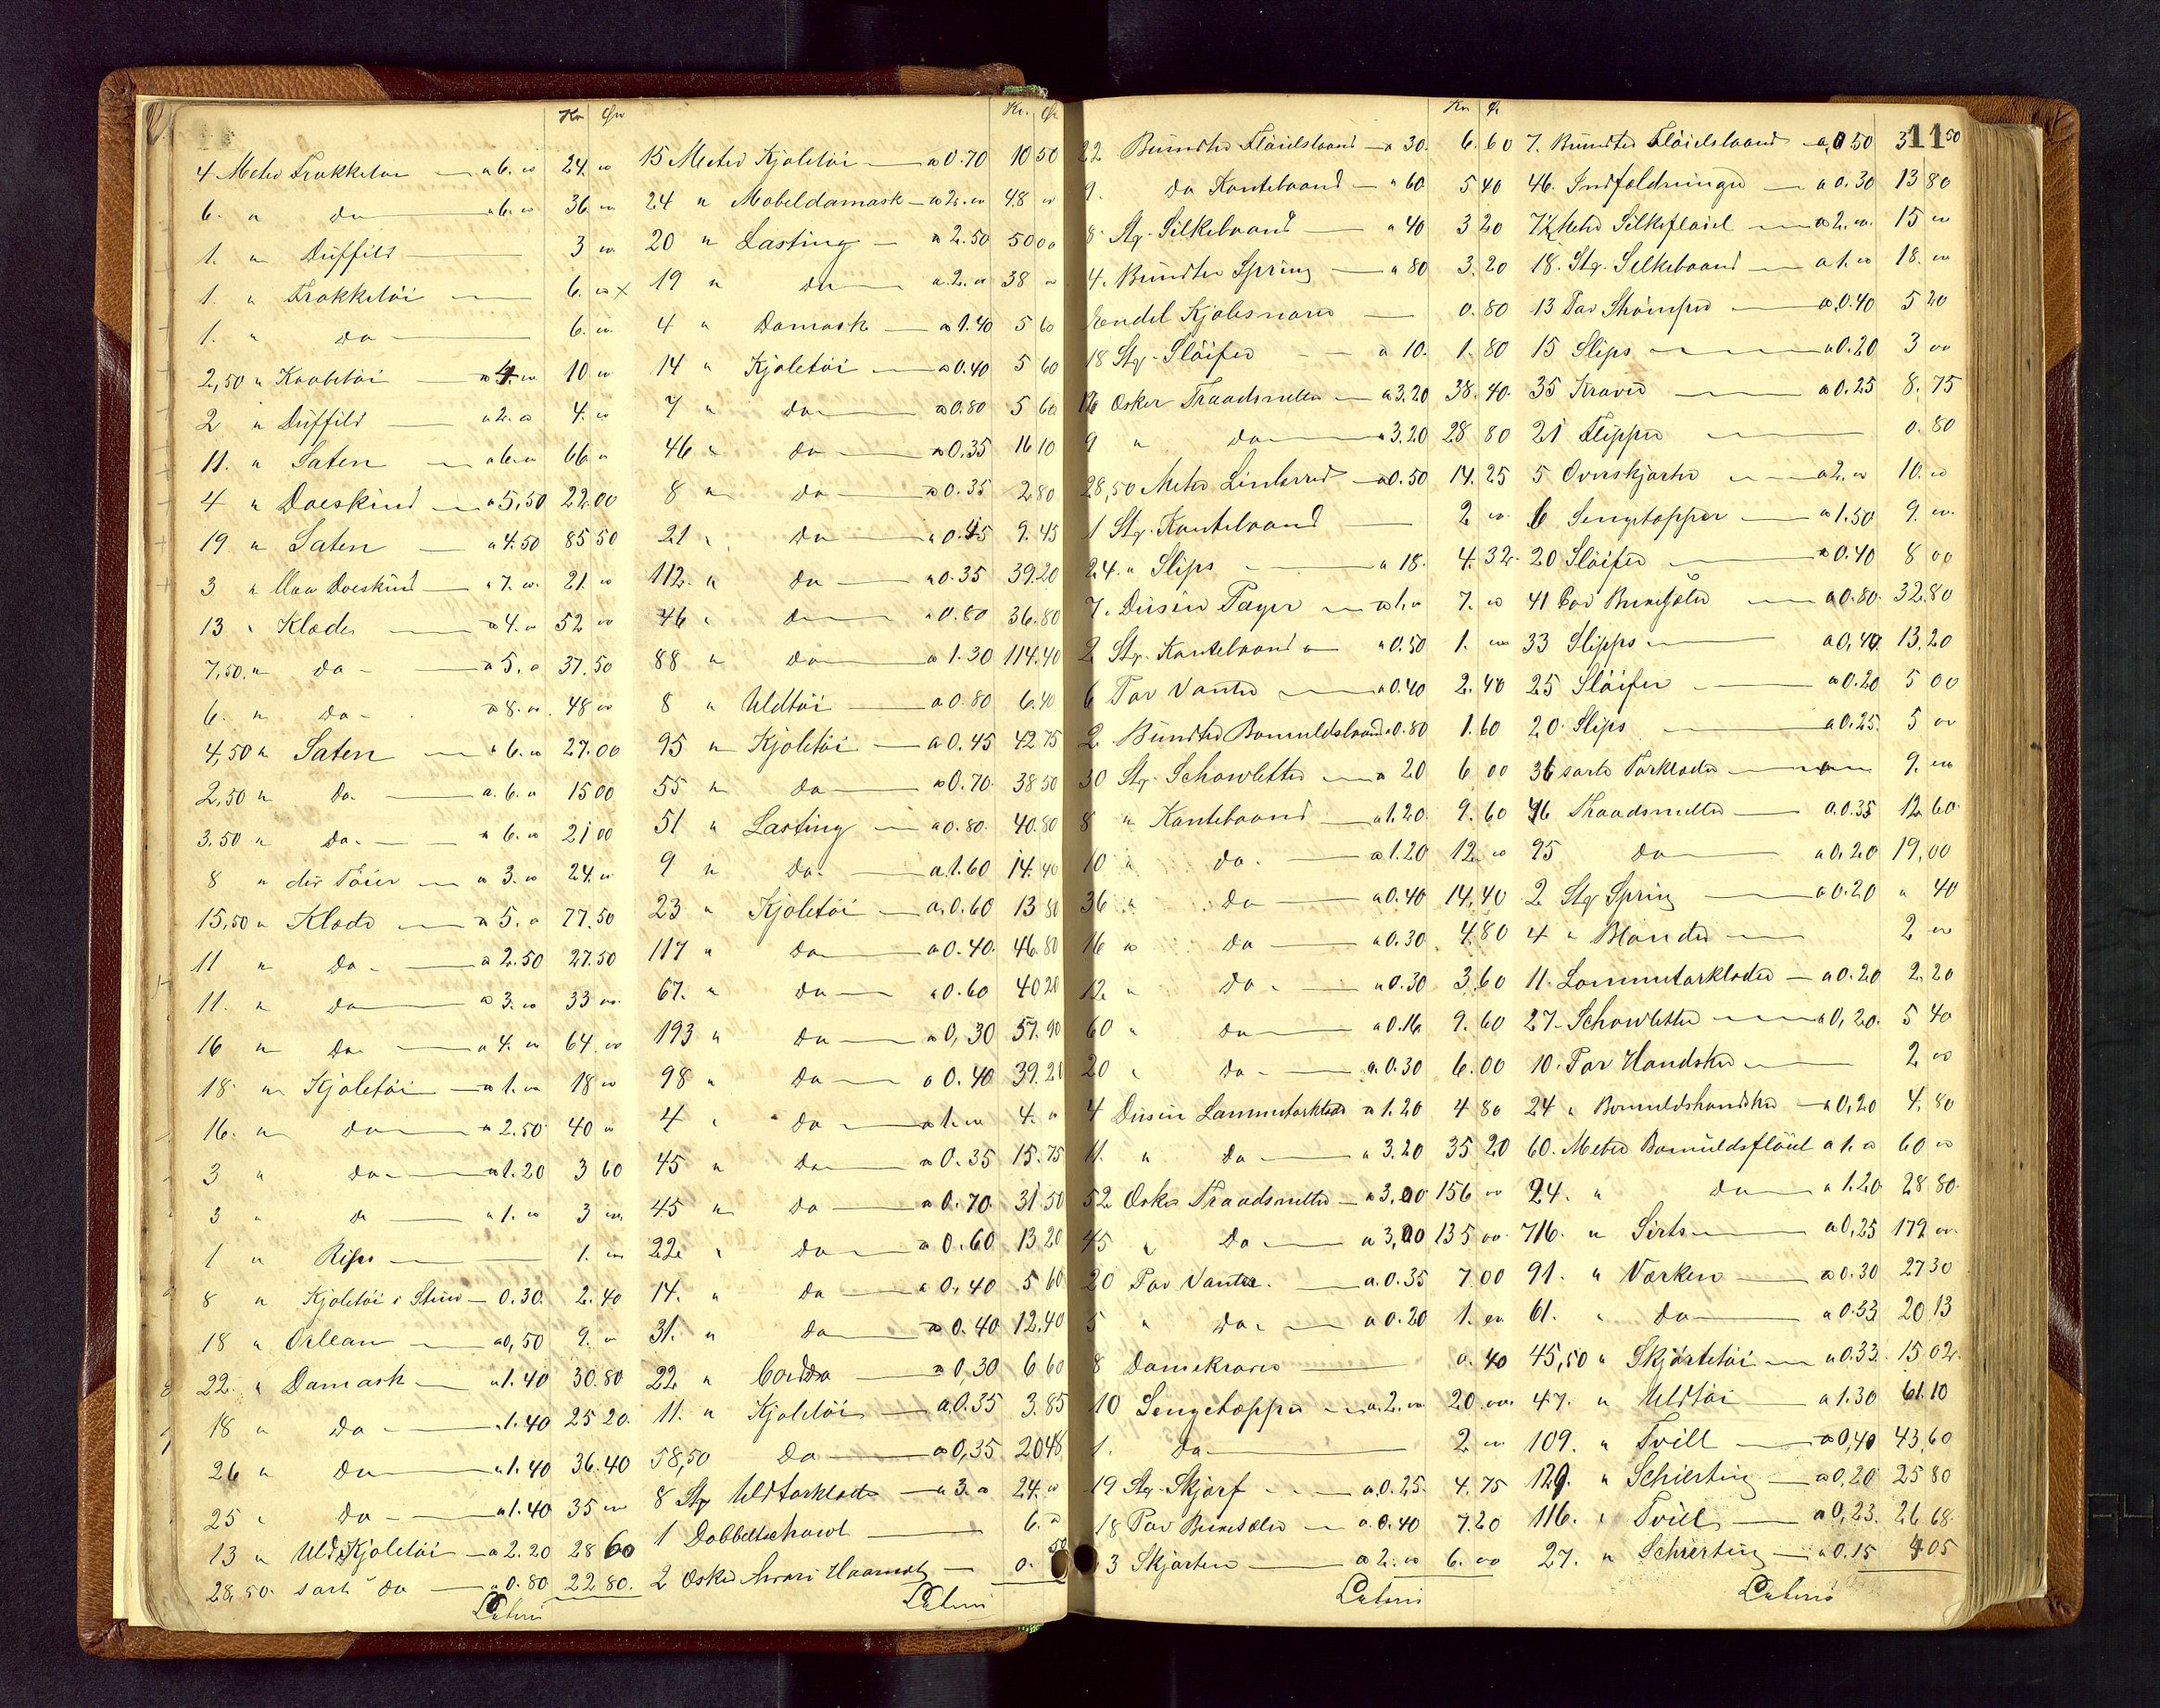 Kr Ør
4 Meter Frakketøi a 6.00 24.00
6. " do a 6.00 36.00
1. " Düffild 3 00
1. " Frakketöi 6.00 x
1. " do 6.00
2,50 " Kaabetöi a 4.00 10 00
2 " Düffild a 2.00 4.00
11. " Saten a 6.00 66 00
4 " Doeskind a 5,50 22.00
19 " Saten a 4.50 85 50
3 " Blaa Doeskind a 7.00 21.00
13 " Klæde a 4.00 52 00
7,50 " do a 5.00 37.50
6. " do a 8.00 48 00
4,50 " Saten a 6.00 27.00
2,50 " do a 6.00 15 00
3.50 " do a 6.00 21 00
8 " div Töier a 3.00 24.00
15,50 " Klæde a 5.00 77.50
11 " do a 2.50 27.50
11. " do a 3.00 33 00
16 " do a 4.00 64.00
18 " Kjoletöi a 1.00 18 00
16. " do a 2.50 40 00
3 " do a 1.20 3 60
3 " do a 1.00 3 00
1 " Rips 1.00
8 " Kjoletöi i Stüv 0.30 2.40
18 " Orlean a 0,50 9.00
22. " Damask a 1.40 30.80
18 " do a 1.40 25 20
26 " do a 1.40 36.40
25 " do a 1.40 35 00
13 " Uld Kjoletöi a 2.20 28 60
28,50 sort do a 0.80 22 80.
Latus
Kr. Ør
15 Meter Kjoletöi a 0.70 10 50
24 " Möbeldamask a 2.00 48 00
20 " Lasting a 2.50 50 00
19 " do a 2.00 38 00
4 " Damask a 1.40 5 60
14 " Kjoletöi a 0.40 5 60
7 " do a 0.80 5 60
46 " do a 0.35 16 10
8 " do a 0.35 2 80
21 " do a 0.45 9.45
112. " do a 0.35 39.20
46 " do a 0.80 36.80
88 " do a 1.30 114.40
8 " Uldtöi a 0.80 6.40
95 " Kjoletöi a 0.45 42 75
55 " do a 0.70 38 50
51 " Lasting a 0.80. 40.80
9 " do a 1.60 14.40
23 " Kjoletöi a 0.60 13 80
117 " do a 0.40. 46.80
67. " do a 0.60 40 20
193 " do a 0,30 57.90
98 " do a 0.40 39.20
4 " do a 1.00 4.00
45 " do a 0.35 15.75
45 " do a 0.70. 31.50
22 " do a 0.60 13 20
14. " do a 0,40 5 60
31. " do a 0.40 12.40
22 " a 0,30 6 60
11. " Kjoletöi a 0.35 3.85
58,50 do a 0,35 20 48
8 Stq Uldtörklæde a 3.00 24.00
1 Dobbeltschawl 6.00
2 Æsker 0. 50
Latus
Kr Ør
22 Bündter Flöielsbaand a 30. 6.60
9. do Kantebaand a 60 5 40
8 Stq. Silkebaand a 40 3 20
4. Bündter Spring a 80 3.20
Endel Kjolesnore 0.80
18 Stq. Slöifer a 10. 1.80
12 Æsker Traadsneller a 3.20 38.40.
9 " do a 3.20 28 80
28,50 Meter Linlærred a 0.50 14.25
1 Stq. Kantebaand 2 00
24. " Slips a 18. 4.32
7. Düsin Tæger a 1.00 7.00
2 Stq. Kantebaand a 0.50 1.00
6 Par Vanter a 0.40 2.40
2 Bündter Bomuldsbaand 0.80 1.60
30 Stq. Schawletter a 20 6 00
8 " Kantebaand a 1.20 9.60
10 " do. a 1.20 12.00
36 " do a 0.40 14,40
16 " do a 0.30 4.80
12 " do a 0.30 3.60
60 " do a 0.16 9.60
20 " do a 0.30 6.00
4 Düsin Lommetørklæde a 1.20 4 80
11. " do a 3.20 35 20
52 Æsker Traadsneller a 3,00 156 00
45 " do a 3,00 135 00
20 Par Vanter a 0.35 7.00
5 " do a 0.20 1.00
8 Damekraver 0.40
10 Sengetæpper a 2.00 20.00
1. do 2 00
19 Stq. Skjærf a 0.25 4.75
18 Par Buxesæler a 0.40 7.20
3 Skjorter a 2.00 6.00
Latus
11
7. Bündter Flöielsbaand a 0.50 3 50
46. Indfældninger a 0.30 13 80
7½ Meter Silkeflöiel a 2.00 15 00
18. Stq. Silkebaand a 1.00 18.00
13 Par Strömper a 0.40 5 20
15 Slips a 0.20 3 00
35 Kraver a 0.25 8.75
21 Flipper 0.80
5 Overskjorter a 2.00 10.00
6 Sengetæpper a 1.50 9.00
20 Slöifer a 0.40 8 00
41 Par Buxesæler a 0.80. 32.80
33 Slipps a 0,40 13,20
25 Slöifer a 0.20 5 00
20. Slips a 0.25. 5 00
36 sorte Törklæder 9.00
36 Traadsneller a 0.35 12 60
95 do a 0.20 19,00
2 Stq Spring a 0.20 " 40
4 " Blonder 2 00
11. Lommetørklæder a 0.20 2.20
27. Schawletter a 0,20. 5 40
10. Par Handsker 2 00
24 " Bomuldshandsker a 0,20 4,80
60. Meter Bomüldsflöiel a 1.00 60 00
24. " do a 1.20 28 80
716. " Sirts a 0,25 179 00
91. " Værken a 0.30 27 30
61. " do a 0.33 20 13
45,50 " Skjörtetöi a 0.33 15 02
47. " Uldtöi a 1.30 61.10
109. " Tvill a 0,40 43,60
129. " Schierting a 0,20 25 80
116. " Tvill a 0,23. 26 68
27. " Schierting a 0.15 4 05
Latus